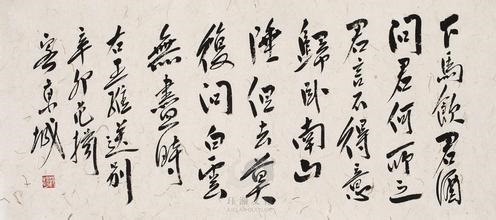 下馬飲君酒
問君何所之
君言不得意
歸卧南山
陲但去莫
復問白雲
無盡時
右王維送別
辛卯范擕
客京城